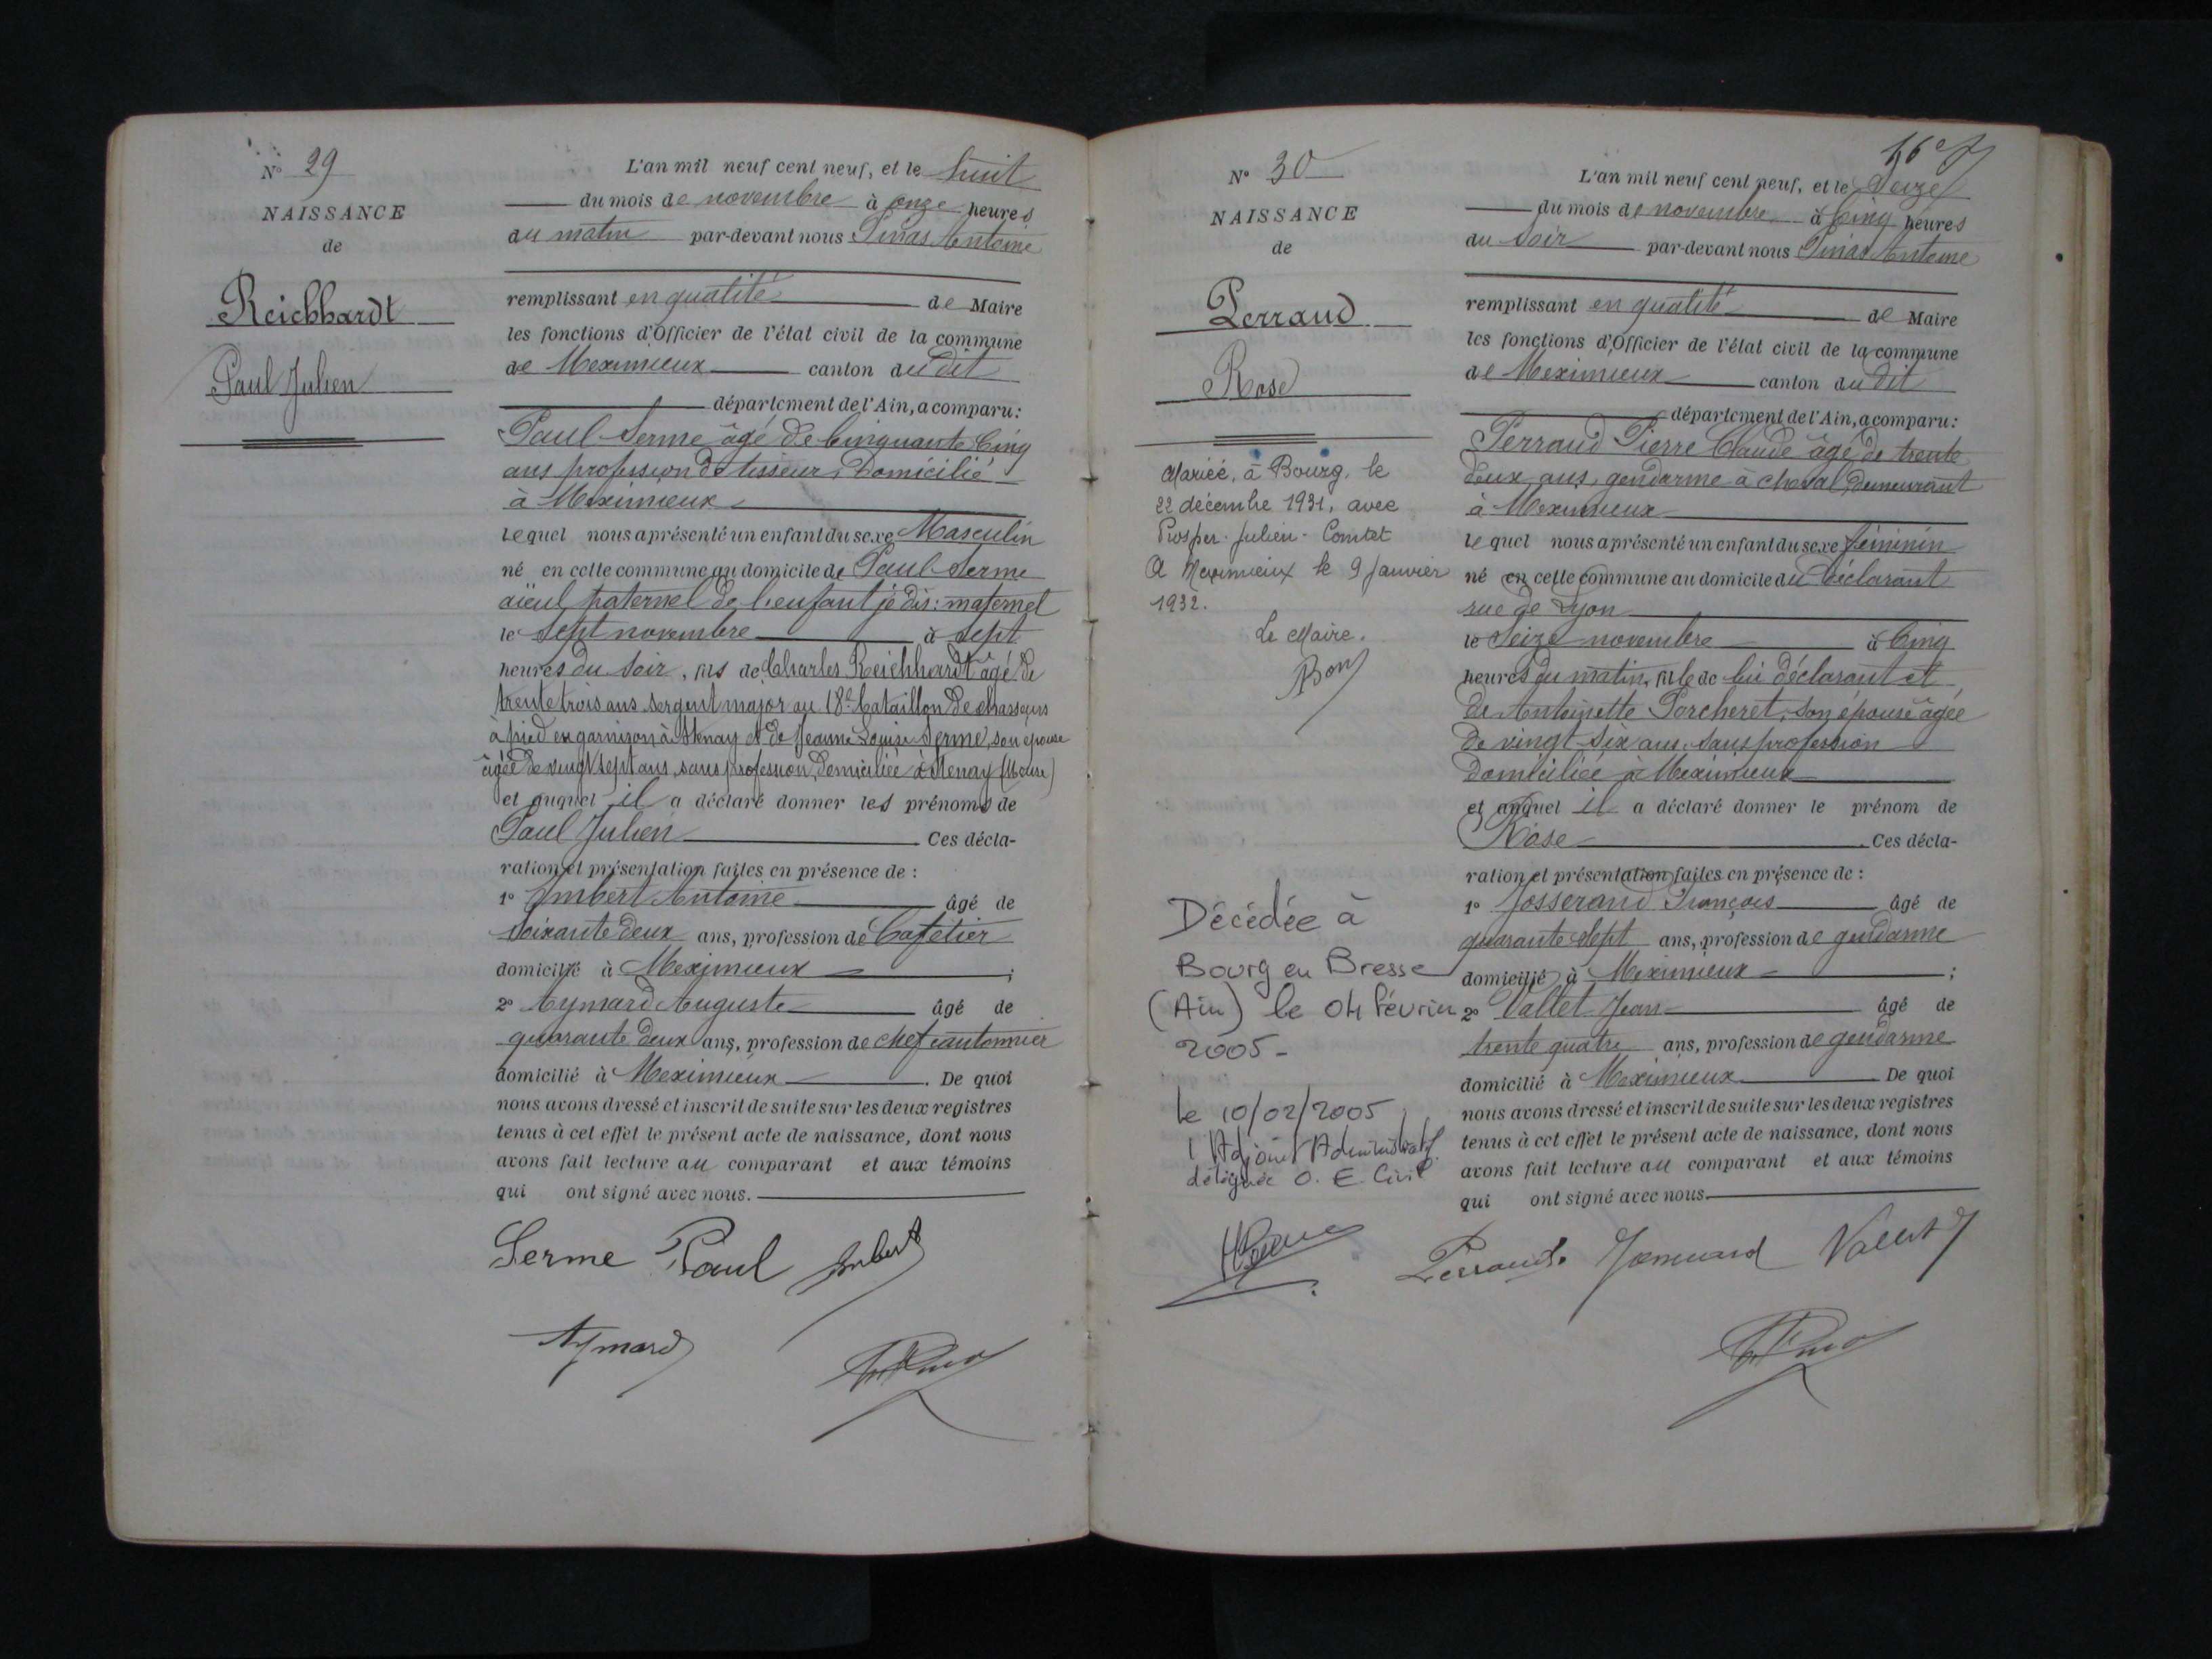 N° 29
NAISSANCE
de
Reichhardt
Paul Julien
L'an mil neuf cent neuf, et le huit
du mois de novembre à onze heures
du matin par-devant nous Pinas Antoine
remplissant en qualité de Maire
les fonctions d'Officier de l'état civil de la commune
de Meximieux canton du dit
département de l'Ain, a comparu:
Paul Serme âgé de Cinquante Cinq
ans profession de tisseur, domicilié
à Meximieux
lequel nous a présenté un enfant du sexe Masculin
né en cette commune au domicile de Paul Serme
aïeul paternel de l'enfant je dis: maternel
le Sept novembre à Sept
heures du Soir, fils de Charles Reichhardt âgé de
trente trois ans sergent major au 18e bataillon de chasseurs
à pied en garnison à Stenay et de Jeanne Louise Serme, son épouse
âgée de vingt sept ans, sans profession, domiciliée à Stenay (Meuse)
et auquel il a déclaré donner les prénoms de
Paul Julien Ces décla-
ration et présentation faites en présence de :
1° Imbert Antoine âgé de
Soixante deux ans, profession de Cafetier
domicilié à Meximieux ;
2° Aymard Auguste âgé de
quarante deux ans, profession de chef cantonnier
domicilié à Meximieux . De quoi
nous avons dressé et inscrit de suite sur les deux registres
tenus à cet effet le présent acte de naissance, dont nous
avons fait lecture au comparant et aux témoins
qui ont signé avec nous.
Serme Paul Imbert
Aymard
16e f
N° 30
NAISSANCE
de
Perraud
Rose
Mariée, à Bourg, le
22 décembre 1931, avec
Prosper-Julien-Comtet
A Meximieux le 9 Janvier
1932.
Le Maire.
Décédée à
Bourg en Bresse
(Ain) le 04 Février
2005-
le 10/02/2005
l'Adjoint Administratif
déléguée O. E. Civil
L'an mil neuf cent neuf, et le Seize
du mois de novembre à Cinq heures
du Soir par-devant nous Pinas Antoine
remplissant en qualité de Maire
les fonctions d'Officier de l'état civil de la commune
de Meximieux canton du dit
département de l'Ain, a comparu:
Perraud Pierre Claude âgé de trente
deux ans, gendarme à cheval, demeurant
à Meximieux
lequel nous a présenté un enfant du sexe féminin
né en cette commune au domicile du déclarant
rue de Lyon
le Seize novembre à Cinq
heures du matin, fille de lui déclarant et
de Antoinette Porcheret, son épouse âgée
de vingt-six ans, sans profession
domiciliée à Meximieux
et auquel il a déclaré donner le prénom de
Rose . Ces décla-
ration et présentation faites en présence de :
1° Josserand François âgé de
quarante sept ans, profession de gendarme
domicilié à Meximieux ;
2° Vallet Jean âgé de
trente quatre ans, profession de gendarme
domicilié à Meximieux De quoi
nous avons dressé et inscrit de suite sur les deux registres
tenus à cet effet le présent acte de naissance, dont nous
avons fait lecture au comparant et aux témoins
qui ont signé avec nous.
Perraud Vallet